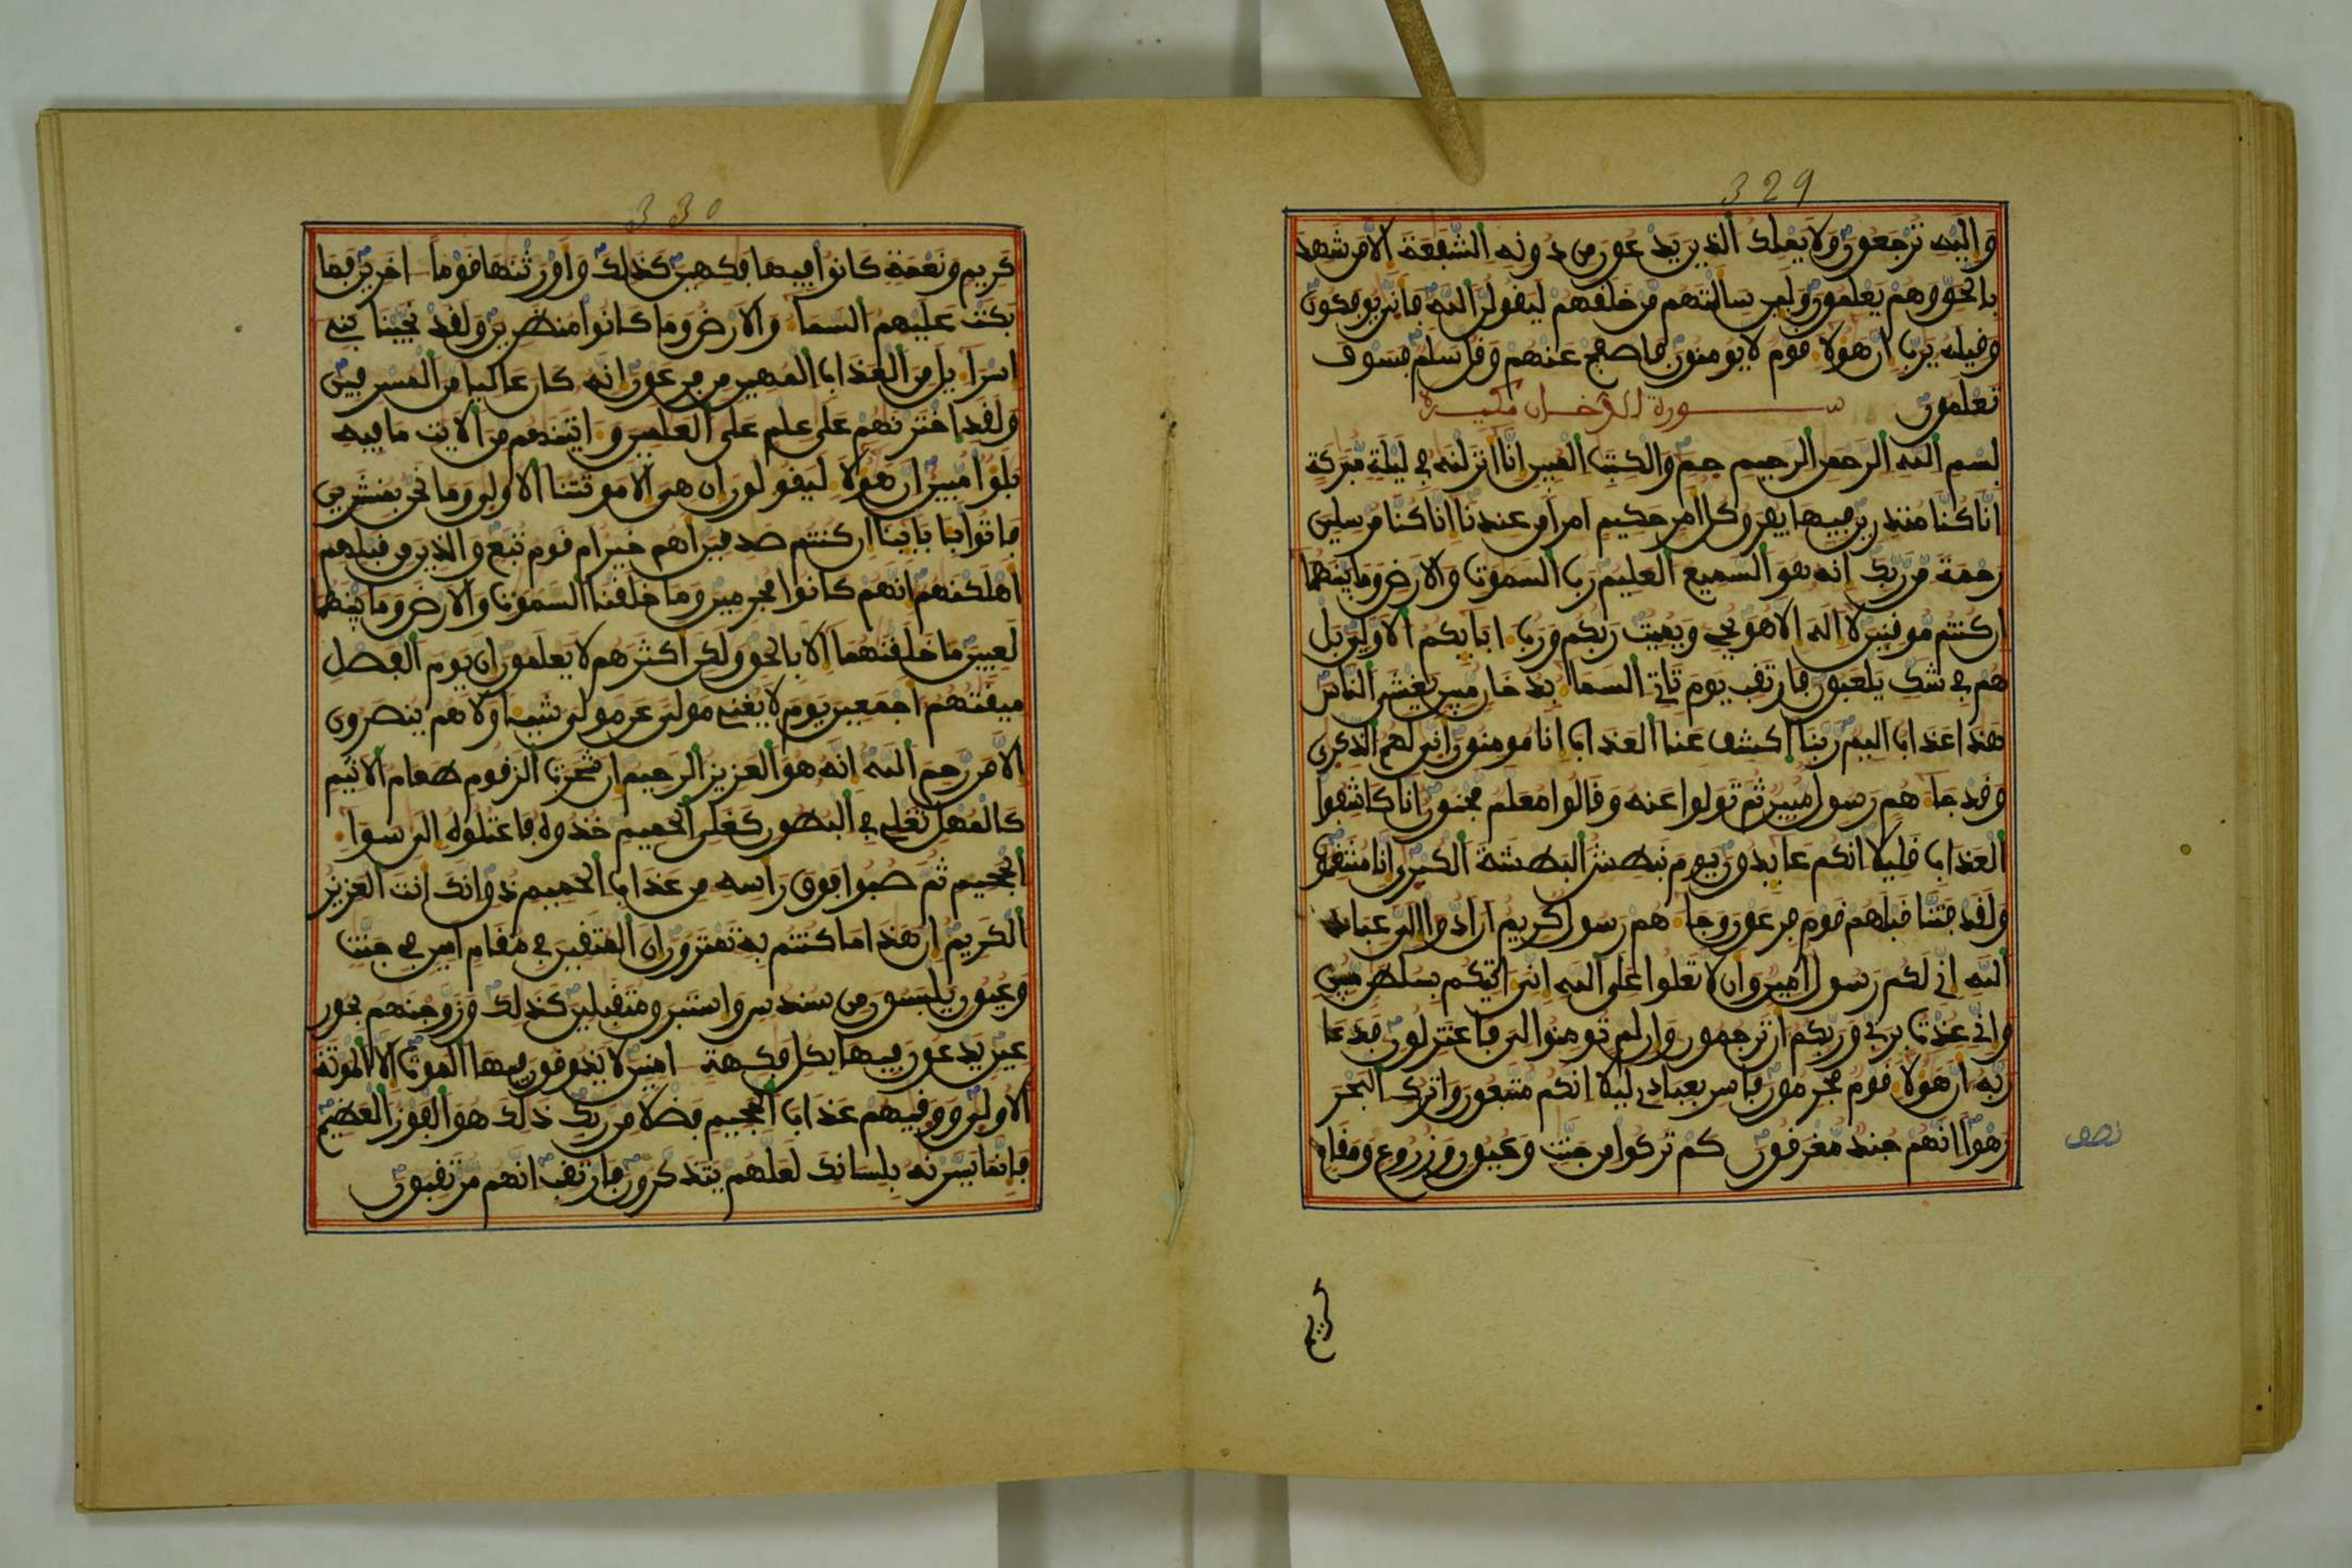 329
وإليه ترجعون ولا يملك الذين يدعون من دونه الشفعة إلا من شهد
بالحق وهم يعلمون ولين سألتهم من خلقهم ليقولن الله فأنى يوفكون
وقيله يرب إن هؤلا قوم لا يومنون فاصفح عنهم وقل سلم فسوف
تعلمون سورة الدخان مكية
بسم الله الرحمن الرحيم حم والكتب المبين إنا أنزلنه في ليلة مبركة
إنا كنا منذرين فيها يفرق كل أمر حكيم أمرا من عندنا إنا كنا مرسلين
رحمة من ربك إنه هو السميع العليم رب السموت والأرض وما بينهما
إن كنتم موقنين لا إله إلا هو يحي ويميت ربكم ورب ابايكم الأولين بل
هم في شك يلعبون فارتقب يوم تأتي السما بدخان مبين يغشى الناس
هذا عذاب أليم ربنا اكشف عنا العذاب إنا مومنون أنى لهم الذكرى
وقد جاهم رسول مبين ثم تولوا عنه وقالوا معلم مجنون إنا كاشفوا
العذاب قليلا إنكم عايدون يوم نبطش البطشة الكبرى إنا منتقمون
ولقد فتنا قبلهم قوم فرعون وجاهم رسول كريم أن أدوا إلي عباد
الله إني لكم رسول أمين وأن لا تعلوا على الله إني اتيكم بسلطن مبين
وإني عذت بربي وربكم أن ترجمون وإن لم تومنوا لي فاعتزلون فدعا
ربه أن هؤلا قوم مجرمون فاسر بعبادي ليلا إنكم متبعون واترك البحر
رهوا إنهم جند مغرقون كم تركوا من جنت وعيون وزروع ومقام
نصف
كريم
330
كريم ونعمة كانوا فيها فكهين كذلك وأورثنها قوما اخرين فما
بكت عليهم السما والأرض وما كانوا منظرين ولقد نجينا بني
إسرايل من العذاب المهين من فرعون إنه كان عاليا من المسرفين
ولقد اخترنهم على علم على العلمين واتينهم من الأيت ما فيه
بلؤا مبين إن هؤلا ليقولون إن هي إلا موتتنا الأولى وما نحن بمنشرين
فاتوا بابابنا إن كنتم صدقين أهم خير أم قوم تبع والذين من قبلهم
أهلكنهم إنهم كانوا مجرمين وما خلقنا السموت والأرض وما بينهما
لعبين ما خلقنهما إلا بالحق ولكن أكثرهم لا يعلمون إن يوم الفصل
ميقتهم أجمعين يوم لا يغني مولى عن مولى شيا ولا هم ينصرون
إلا من رحم الله إنه هو العزيز الرحيم إن شجرت الزقوم طعام الأثيم
كالمهل تغلي في البطون كغلي الحميم خذوه فاعتلوه إلى سوا
الجحيم ثم صبوا فوق رأسه من عذاب الحميم ذق إنك أنت العزيز
الكريم إن هذا ما كنتم به تمترون إن المتقين في مقام أمين في جنت
وعيون يلبسون من سندس وإستبرق متقبلين كذلك وزوجنهم بحور
عين يدعون فيها بكل فكهة امنين لا يذوقون فيها الموت إلا الموتة
الأولى ووقيهم عذاب الجحيم فضلا من ربك ذلك هو الفوز العظيم
فإنما يسرنه بلسانك لعلهم يتذكرون فارتقب إنهم مرتقبون